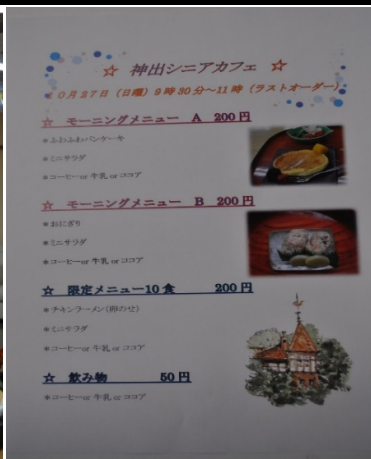 ☆ 神出シニアカフェ ☆
10月27日（日曜）9時30分～11時（ラストオーダー）
☆ モーニングメニュー A 200円
＊ふわふわパンケーキ
＊ミニサラダ
＊コーヒーor 牛乳 or ココア
☆ モーニングメニュー B 200円
＊おにぎり
＊ミニサラダ
＊コーヒーor 牛乳 or ココア
☆ 限定メニュー10食 200円
＊チキンラーメン(卵のせ)
＊ミニサラダ
＊コーヒーor 牛乳 or ココア
☆ 飲み物 50円
＊コーヒーor 牛乳 or ココア